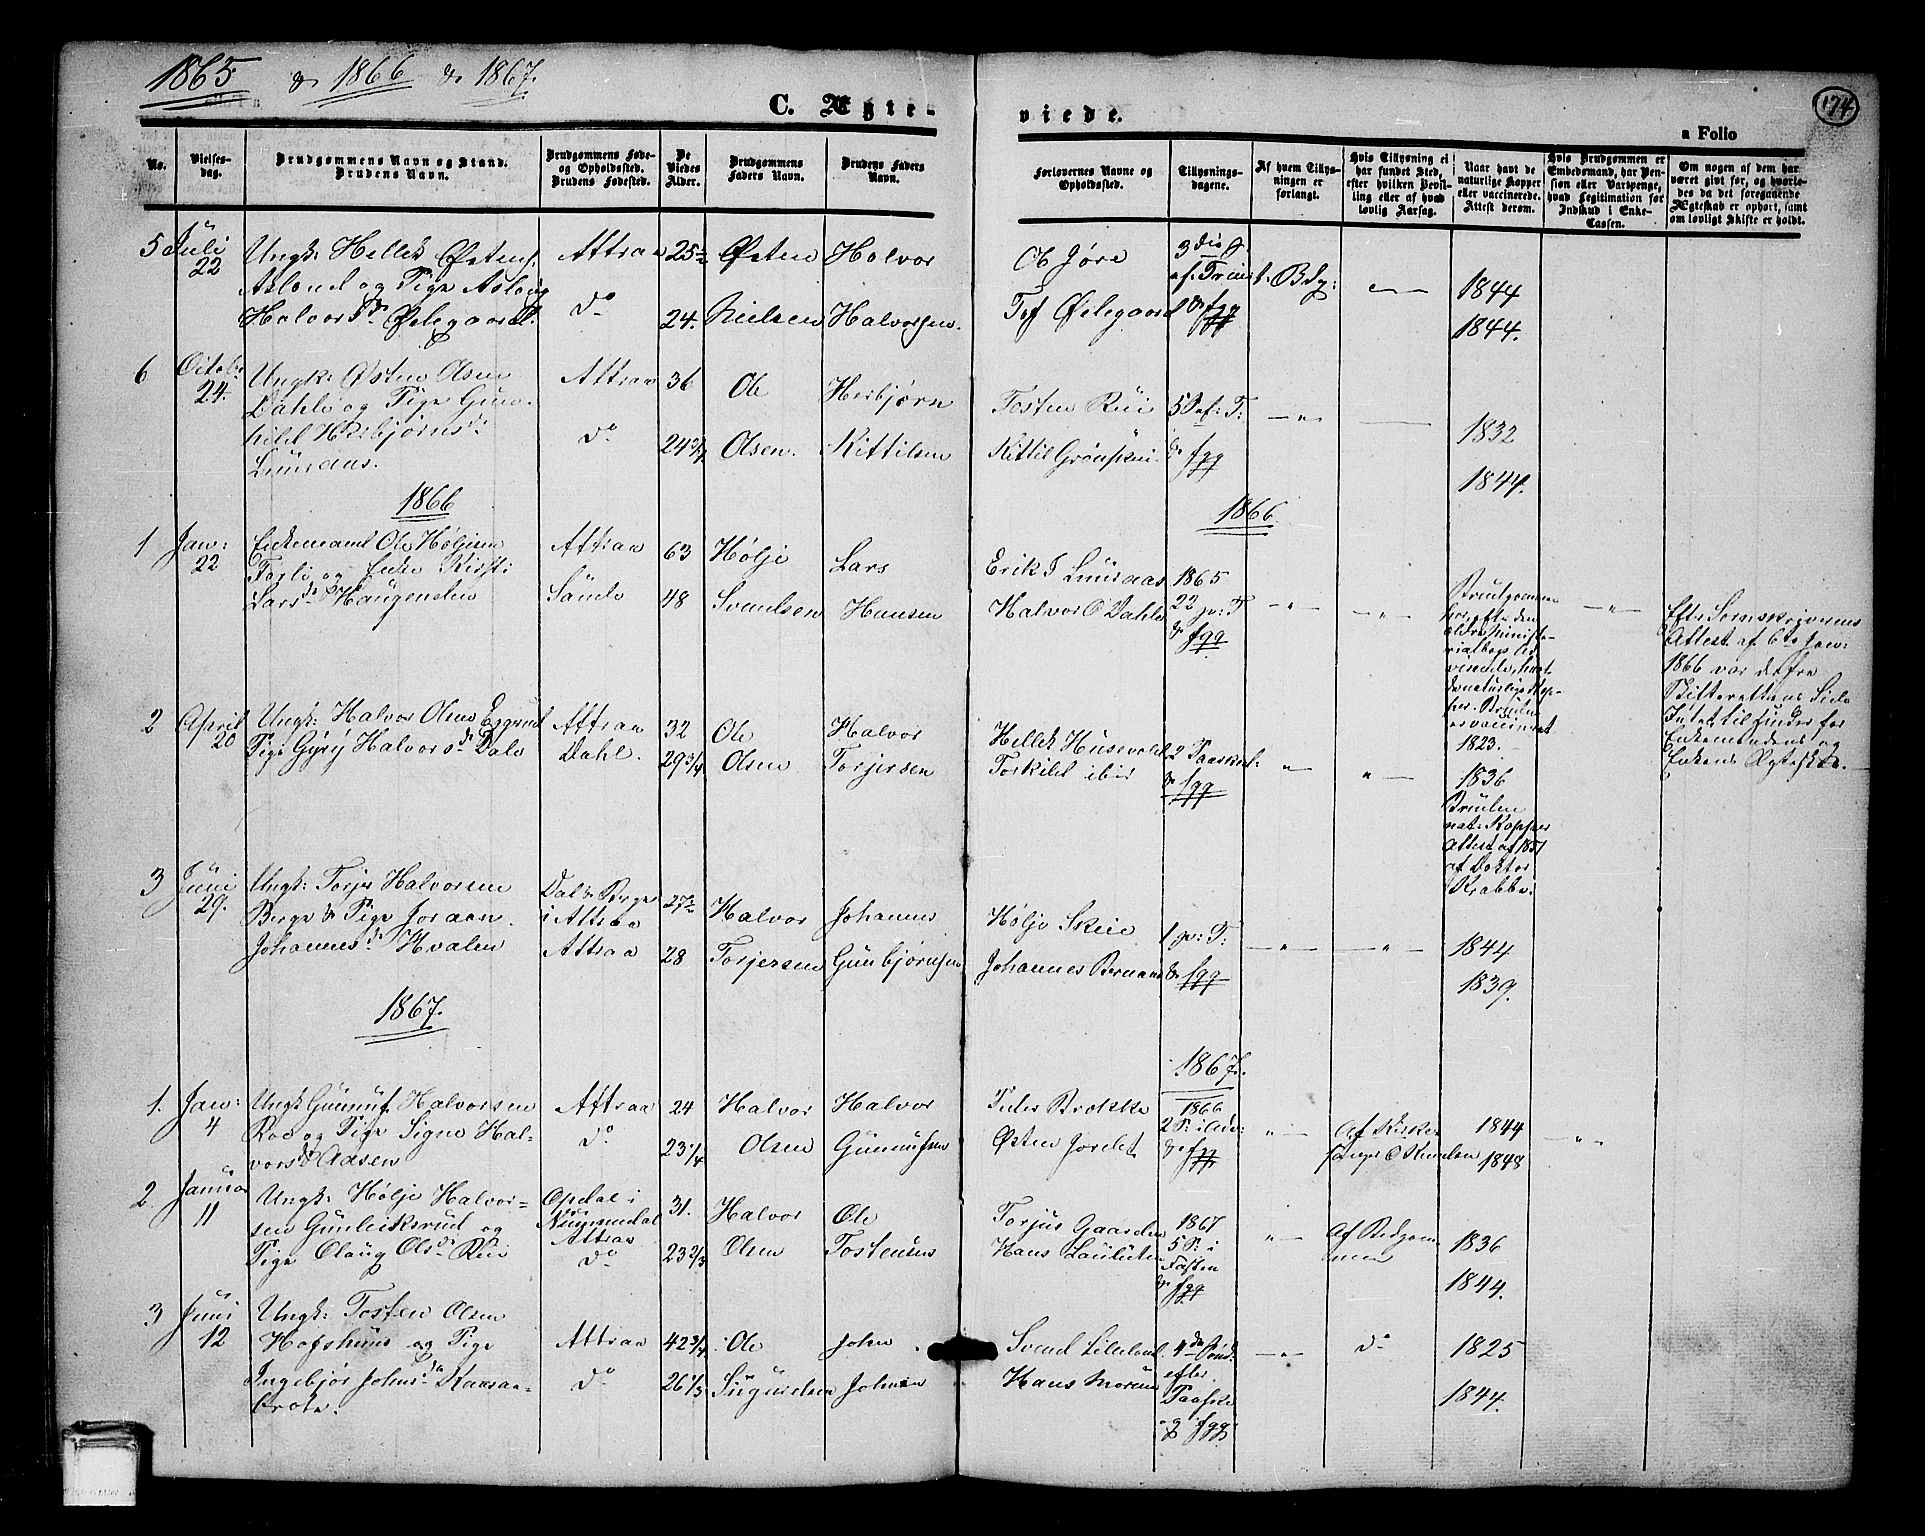 1865 & 1866 & 1867.
C. Ægte-
viede.
174
a Folio
No.
Vielses-
dag.
Brudgommens Navn og Stand.
Brudens Navn.
Brudgommens Føde-
og Opholdssted.
Brudens Fødested.
De
Viedes
Alder.
Brudgommens
Faders Navn.
Brudens Faders
Navn.
Forlovernes Navne og
Opholdssted.
Tillysnings-
dagene.
Af hvem Tillys-
ningen er
forlangt.
Hvis Tillysning ei
har fundet Sted,
efter hvilken Bevil-
ling eller af hvad
lovlig Aarsag.
Naar havt de
naturlige Kopper
eller vaccinerede.
Attest derom.
Hvis Brudgommen er
Embedsmand, har Pen-
sion eller Vartpenge,
hvad Legitimation for
Indskud i Enke-
Cassen.
Om nogen af dem har
været gift før, og hvorle-
des da det foregaaende
Ægteskab er ophørt, samt
om lovligt Skifte er holdt.
5 Juli
22
Ungk: Hellek Østens.
Asland og Pige Aslaug
Halvorsdr Ølegaard.
Attraa
do
25½
24.
Østen
Nielsen
Halvor
Halvorsen.
Ob Jøre
Tof Ølegaard
3die S.
ef. Trini
& fgg
1844
1844.
6 Octob:
24.
Ungk: Østen Olsen
Dahle og Pige Gun-
hild Herbjørnsdr
Luuraas.
Attraa
do
36
24¾
Ole
Olsen.
Herbjørn
Kittilsen
Tosten Rui
Kittil Grønskei
5 S ef: T:
& fgg
1832
1844.
1866
1866
1 Jan:
22
Enkemand Ole Høljesen
Torli og Enke Kirsti
Larsdr Haugenden
Attraa
Sønde
63
48
Hølje
Svendsen
Lars
Hansen
Erik T Luuraas
Halvor O Dahle
1865
22 p: T
& fgg
Brudgommen
har efter den
ældre Ministe-
rialbogs Ud-
visende, havt
de naturlige Kop-
per. Bruden
er vaccineret
1823.
Efter Sorenskriverens
Attest af 6te Jan:
1866 var der fra
Skifterettens Side
Intet til Hinder for
Enkemandens og
Enkens Ægteskab.
2 April
20
Ungk: Halvor Olsen Eggerud
Pige Gyrÿ Halvorsdr Dale
Attraa
Dahl.
32
29¾
Ole
Olsen
Halvor
Torjersen
Hellek Husevold
Torkild ibid
2 Paaskd:
& fgg
1836
Bruden
nat: Kopper
Attest af 1851
af Doktor
Krabbe.
3 Juni
29.
Ungk: Torjer Halvorsen
Berge & Pige Joraan
Johannesdr Hvalen
Dal & Berge
i Attraa
Attraa
27½
28
Halvor
Torjersen
Johannes
Gunbjørnsen
Hølje Skeie
Johannes Bernaas
1 p: T:
& fgg
1844
1839.
1867.
1867.
1. Jan:
4
Ungk Gunnuf Halvorsen
Roe og Pige Signe Hal-
vorsdr Aasen
Attraa
do
24
23¼
Halvor
Olsen
Halvor
Gunnufsen
Peder Brække
Østen Jordet
1866
2 S: i Adv:
& fgg
Af Kirke-
sanger O Knudsen
1844
1848
2 Januar
11
Ungk: Hølje Halvor-
sen Gunleiksrud og
Pige Olaug Olsdr Rui
Opdal i
Nummedal
Attraa
do
31.
23⅔
Halvor
Olsen
Ole
Tostensen
Torjus Gaarden
Hans Lauluten
1867
5 S: i
Fasten
& fgg
Af Brdgom-
men
1836
1844.
3 Juni
12
Ungk: Tosten Olsen
Hofshuus og Pige
Ingebjør Johnsdr Kaasaa-
brote.
Attraa
do
42¾
26⅓
Ole
Sigurdsen
John
Johnsen
Svend Lileland.
Hans Moruu
4de Sønd.
efter
Paaske
og fgg
do
1825
1844.